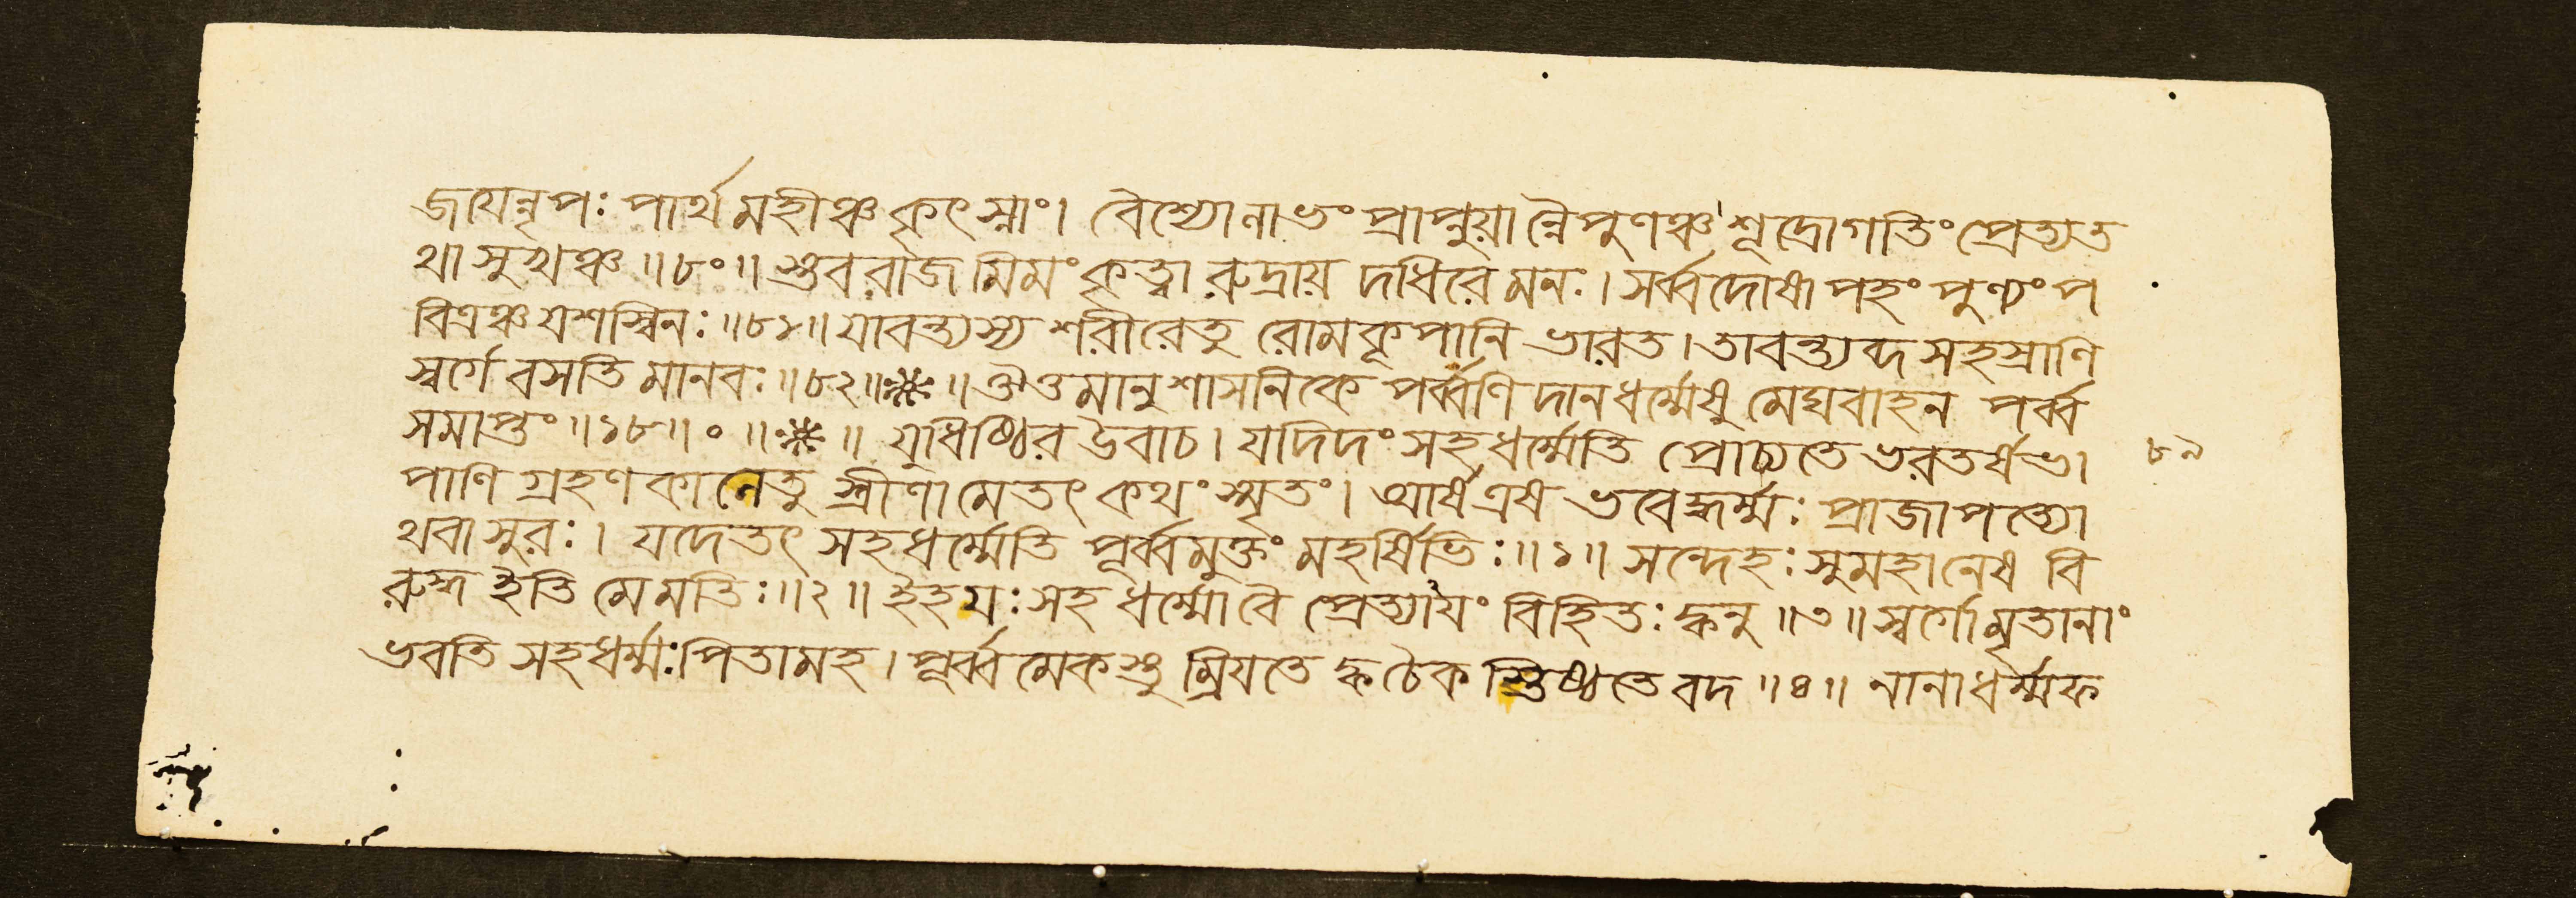 জায়ন্নৃপঃ পার্থ মহীঞ্চ কৃৎস্নাং। বৈশ্যোলাভং প্রাপ্নুয়ান্নৈপুণঞ্চ শূদ্রোগতিং প্রেত্যত
থা সুখঞ্চ ॥৮০॥ স্তবরাজমিমং কৃত্বা রুদ্রায় দধিরে মনঃ। সর্ব্বদোষাপহং পুণ্যং প
বিত্রঞ্চ যশস্বিনঃ ॥৮১॥ যাবন্ত্যস্য শরীরেতু রোমকূপানি ভারত। তাবন্ত্যব্দ সহস্রাণি
স্বর্গে বসতি মানবঃ ॥৮২॥ ॥ ঔওমানুশাসনিকে পর্ব্বণি দানধর্ম্মেষু মেঘবাহন পর্ব্ব
সমাপ্তং ॥১৮॥ ০ ॥ ॥ যুধিষ্ঠির উবাচ। যদিদং সহধর্ম্মেতি প্রোচ্যতে ভরতর্ষভ।
৮৯
পাণি গ্রহণ কালেতু স্ত্রীণামেতৎ কথং স্মৃতং। আর্ষ এষ ভবেদ্ধর্ম্মঃ প্রাজাপত্যো
থবাসুরঃ। যদেতৎ সহধর্ম্মেতি পূর্ব্বমুক্তং মহর্ষিভিঃ ॥১॥ সন্দেহঃ সুমহানেষ বি
রুদ্ধ ইতি মে মতিঃ ॥২॥ ইহ যঃ সহ ধর্ম্মোবৈ প্রেত্যায়ং বিহিতঃ ক্বনু ॥৩॥ স্বর্গোমৃতানাং
ভবতি সহধর্ম্মঃ পিতামহ। পূর্ব্বমেকস্তু ম্রিয়তে ক্ব চৈকস্তিষ্ঠতে বদ ॥৪॥ নানাধর্ম্মফ